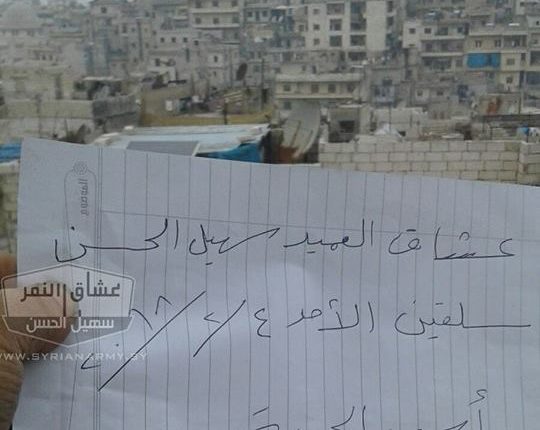 عشاق العميد سهيل الحسن
سلقين الأحد ٤/٤/
عشاق النمر
سهيل الحسن
WWW.SYRIANARMY.SY